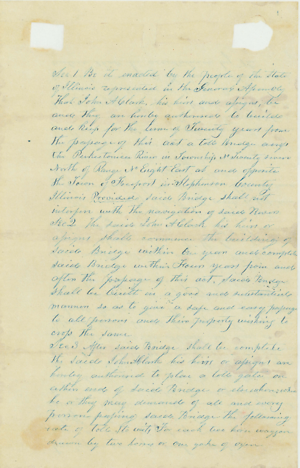 Sec 1 Be it enacted by the people of the State
of Illinois represented in the General Assembly
That John A Clark, his heirs and assigns, be
and they are hereby authorized to build
and keep for the term of Twenty years from
the passage of this act a toll Bridge across
the Pickatonica River in Township No Twenty seven
North of Range No Eight East at and opposite
the Town of Freeport in Stephenson County
Illinois Provided said Bridge shall not
interfere with the navigation of said River
Sec 2. The said John A Clark his heirs or
assigns shall commence the building of
said Bridge within one year and complete
said Bridge within Four years from and
after the passage of this act, said Bridge
shall be built in a good and substantial
manner so as to give a safe and easy passage
to all persons and their property wishing to
cross the same.
Sec 3. After said Bridge shall be completed
the said John A Clark his heirs or assigns are
hereby authorized to place a toll gate at
either end of said Bridge or elsewhere
he or they may demand of all and every
person passing said Bridge the following
rates of Toll to wit; For each two horse waggon
drawn by two horses or one yoke of oxen